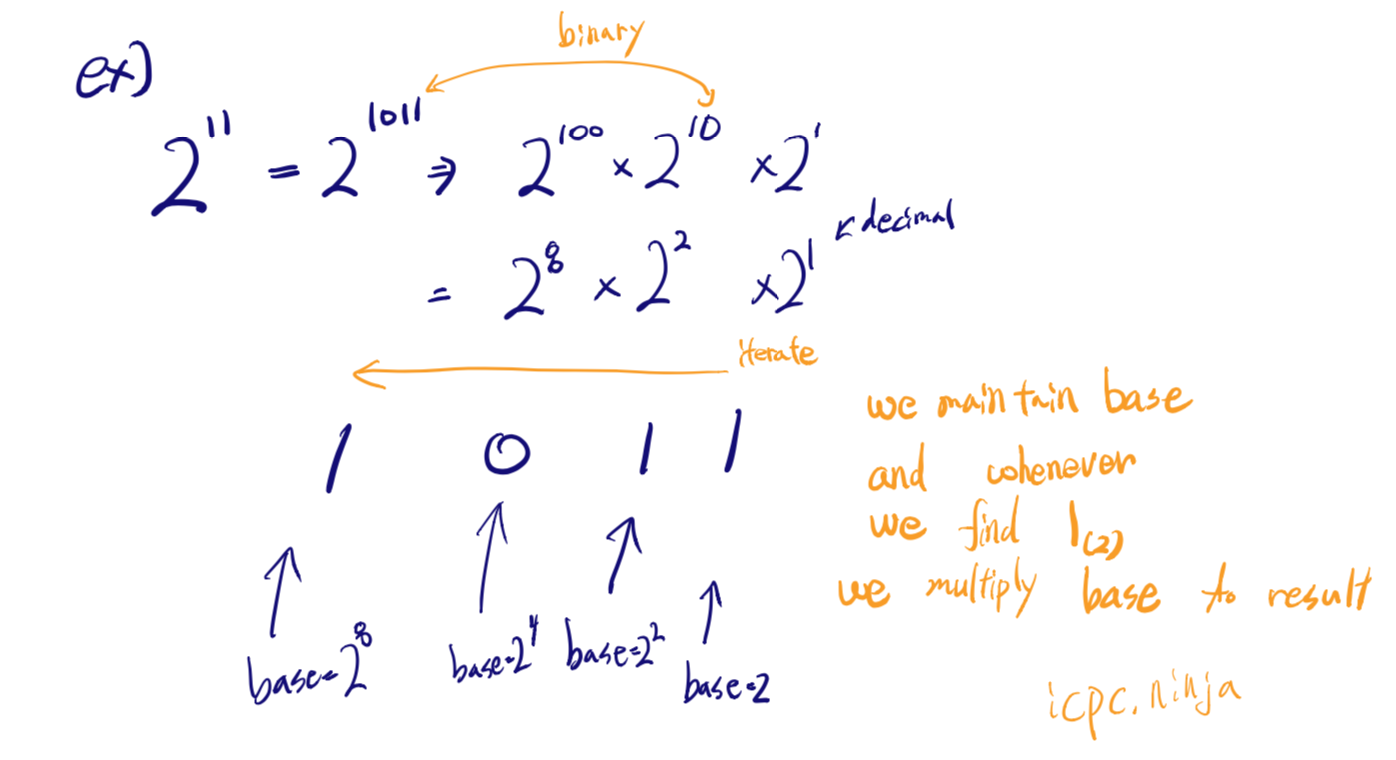 binary
ex)
2^11 = 2^1011 ⇒ 2^100 × 2^10 × 2^1
= 2^8 × 2^2 × 2^1
decimal
iterate
1 0 1 1
base=2^8 base=2^4 base=2^2 base=2
we maintain base
and whenever
we find 1(2)
we multiply base to result
icpc.ninja